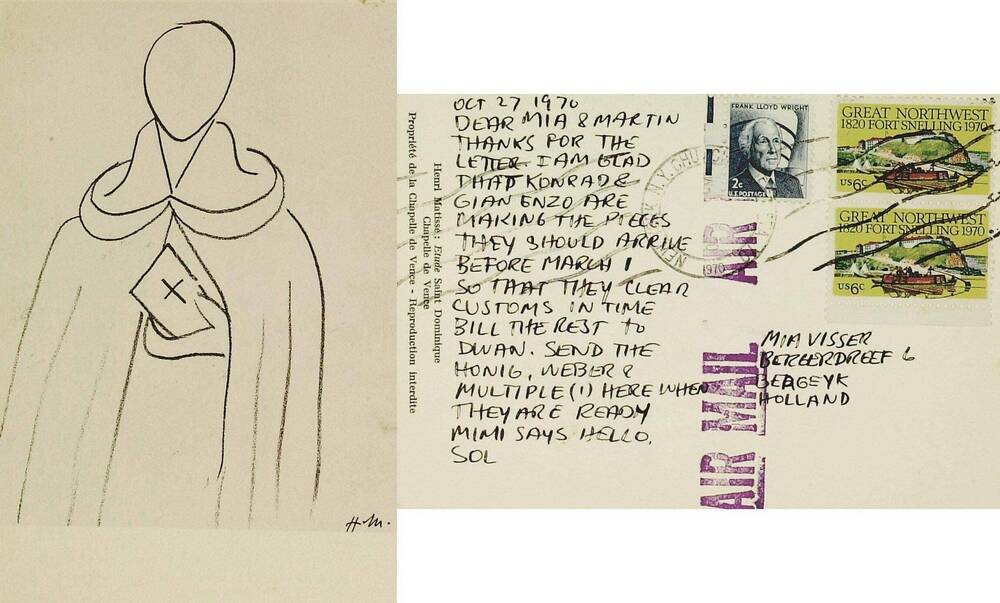 H.M.
OCT 27, 1970
DEAR MIA & MARTIN
THANKS FOR THE
LETTER. I AM GLAD
THAT KONRAD &
GIAN ENZO ARE
MAKING THE PIECES
THEY SHOULD ARRIVE
BEFORE MARCH 1
SO THAT THEY CLEAR
CUSTOMS IN TIME
BILL THE REST TO
DWAN. SEND THE
HONIG, WEBER &
MULTIPLE (1) HERE WHEN
THEY ARE READY
MIMI SAYS HELLO.
SOL
Henri Matisse: Etude Saint Dominique
Chapelle de Vence
Propriété de la Chapelle de Vence - Reproduction interdite
FRANK LLOYD WRIGHT
2c
U.S. POSTAGE
GREAT NORTHWEST
1820 FORT SNELLING 1970
US 6c
GREAT NORTHWEST
1820 FORT SNELLING 1970
US 6c
N.Y. CHU
NEW
1970
AIR
AIR MAIL
MIA VISSER
BERGERDREEF 6
BERGEYK
HOLLAND